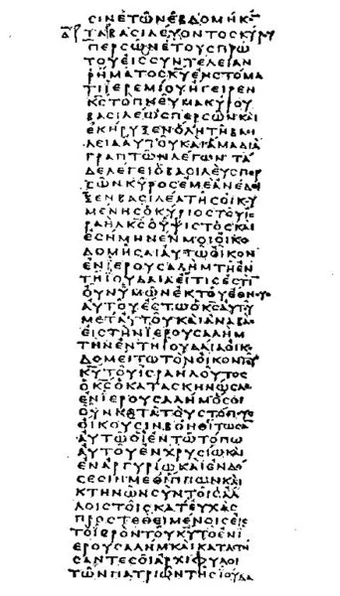 ϹΙΝΕΤΩΝΕΒΔΟΜΗΚΟ̅
ΤΑΒΑϹΙΛΕΥΟΝΤΟϹΚΥΡΟΥ
ΠΕΡϹΩΝΕΤΟΥϹΠΡΩ
ΤΟΥΕΙϹϹΥΝΤΕΛΕΙΑΝ
ΡΗΜΑΤΟϹΚ̅Υ̅ΕΝϹΤΟΜΑ
ΤΙΙΕΡΕΜΙΟΥΗΓΕΙΡΕΝ
Κ̅Ϲ̅ΤΟΠΝΕΥΜΑΚΥΡΟΥ
ΒΑϹΙΛΕΩϹΠΕΡϹΩΝΚΑΙ
ΕΚΗΡΥΞΕΝΟΛΗΤΗΒΑϹΙ
ΛΕΙΑΑΥΤΟΥΚΑΙΑΜΑΔΙΑ
ΓΡΑΠΤΩΝΛΕΓΩΝΤΑ
ΔΕΛΕΓΕΙΟΒΑϹΙΛΕΥϹΠΕΡ
ϹΩΝΚΥΡΟϹΕΜΕΑΝΕΔΕΙ
ΞΕΝΒΑϹΙΛΕΑΤΗϹΟΙΚΟΥ
ΜΕΝΗϹΟΚΥΡΙΟϹΤΟΥΙϹ
ΡΑΗΛΚ̅Ϲ̅ΟΥΨΙϹΤΟϹΚΑΙ
ΕϹΗΜΗΝΕΝΜΟΙΟΙΚΟ
ΔΟΜΗϹΑΙΑΥΤΩΟΙΚΟΝ
ΕΝΙΕΡΟΥϹΑΛΗΜΤΗΕΝ
ΤΗΙΟΥΔΑΙΑΕΙΤΙϹΕϹΤΙ̅
ΟΥΝΥΜΩΝΕΚΤΟΥΕΘΝΟΥϹ
ΑΥΤΟΥΕϹΤΩΟΚ̅Ϲ̅ΑΥΤΟΥ
ΜΕΤΑΥΤΟΥΚΑΙΑΝΑΒΑϹ
ΕΙϹΤΗΝΙΕΡΟΥϹΑΛΗΜ
ΤΗΝΕΝΤΗΙΟΥΔΑΙΑΟΙΚΟ
ΔΟΜΕΙΤΩΤΟΝΟΙΚΟΝΤΟΥ
Κ̅Υ̅ΤΟΥΙϹΡΑΗΛΟΥΤΟϹ
ΟΚ̅Ϲ̅ΟΚΑΤΑϹΚΗΝΩϹΑϹ
ΕΝΙΕΡΟΥϹΑΛΗΜΟϹΟΙ
ΟΥΝΚΑΤΑΤΟΥϹΤΟΠΟΥϹ
ΟΙΚΟΥϹΙΝΒΟΗΘΙΤΩϹΑ̅
ΑΥΤΩΟΙΕΝΤΩΤΟΠΩ
ΑΥΤΟΥΕΝΧΡΥϹΙΩΚΑΙ
ΕΝΑΡΓΥΡΙΩΚΑΙΕΝΔΟ
ϹΕϹΙΝΜΕΘΙΠΠΩΝΚΑΙ
ΚΤΗΝΩΝϹΥΝΤΟΙϹΑΛ
ΛΟΙϹΤΟΙϹΚΑΤΕΥΧΑϹ
ΠΡΟϹΤΕΘΕΙΜΕΝΟΙϹΕΙϹ
ΤΟΙΕΡΟΝΤΟΥΚ̅Υ̅ΤΟΕΝΙ
ΕΡΟΥϹΑΛΗΜΚΑΙΚΑΤΑϹΤΗ
ϹΑΝΤΕϹΟΙΑΡΧΙΦΥΛΟΙ
ΤΩΝΠΑΤΡΙΩΝΤΗϹΙΟΥΔΑ